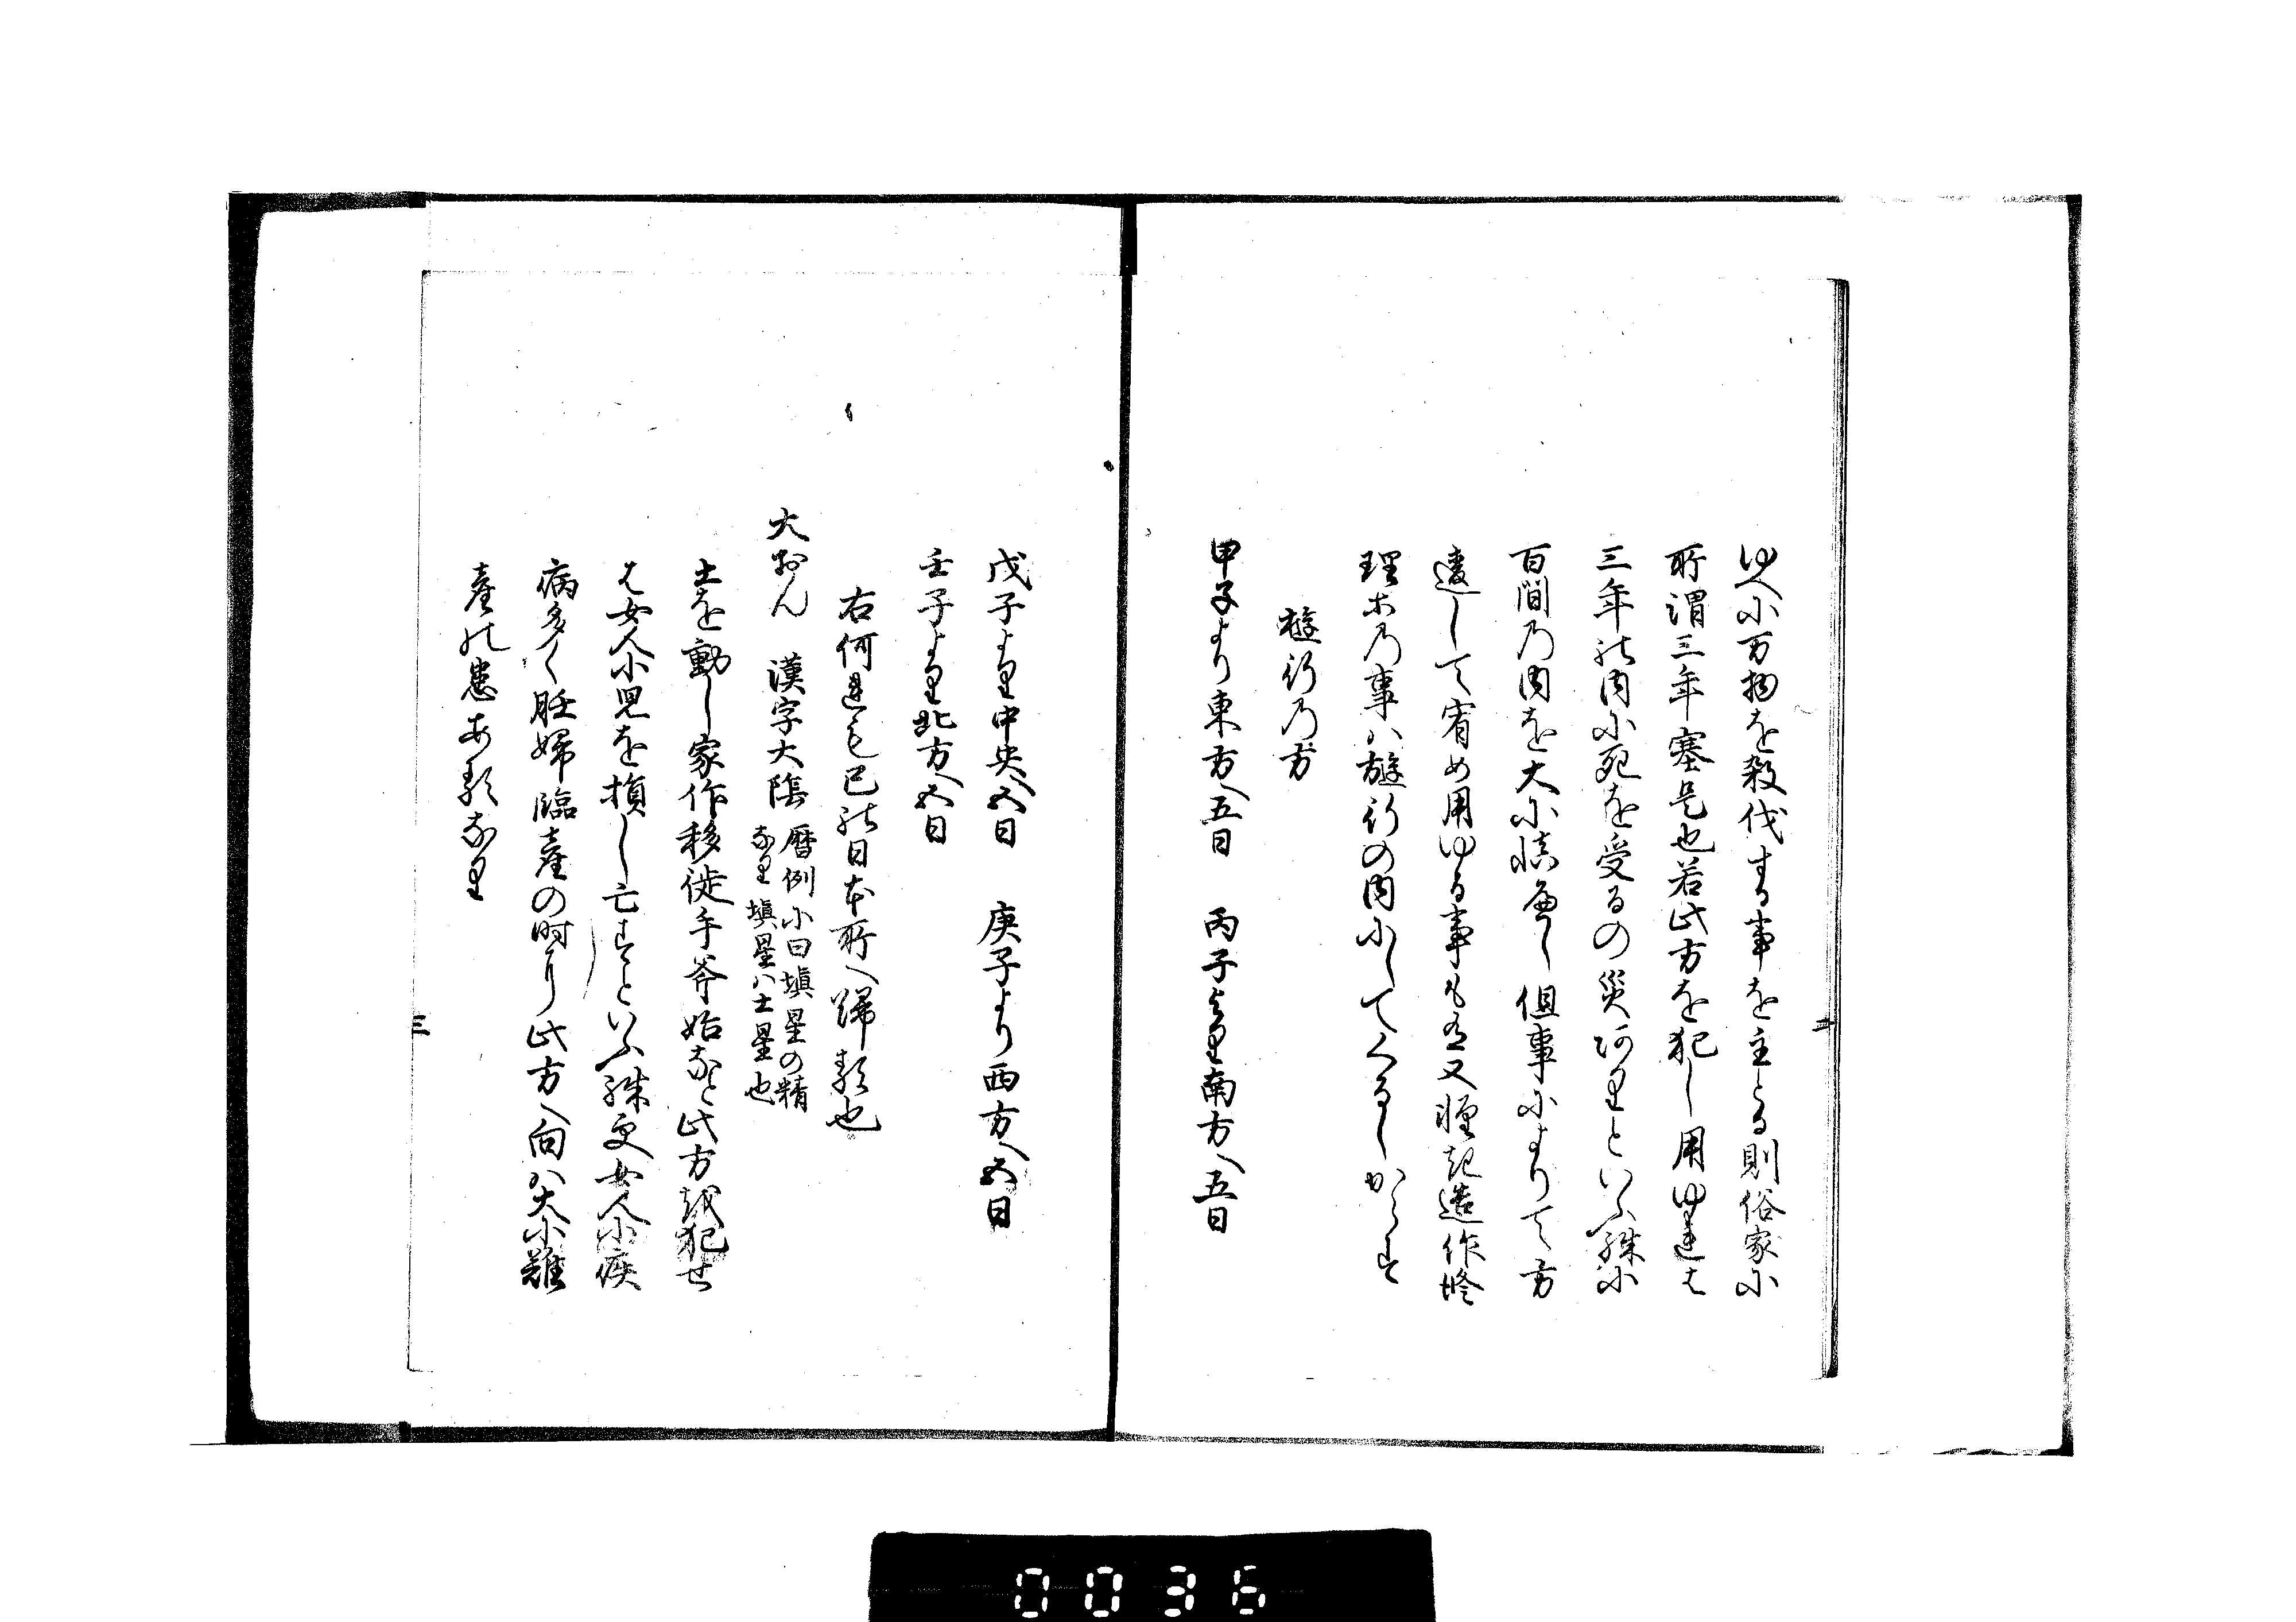 ゆへに万物を殺伐する事を主とる則俗家に
所謂三年塞是也若此方を犯し用ゆれは
三年の内に死を受るの災ありといふ殊に
百間の内を大に慎へし但事によりて方
違して宥め用ゆる事も有又
起造作修
理等の事ハ遊行の内にしてくるしからす
遊行の方
甲子より東方へ五日　丙子より南方へ五日
二
戊子より中央へ五日　庚子より西方へ五日
壬子より北方へ五日
右何れも巳の日本所へ帰る也
大おん　漢字大陰　暦例に曰塡星の精
なり塡星ハ土星也
土を動し家作移徙手斧始なと此方を犯せ
は女人小児を損し亡すといふ殊更女人に疾
病多く妊婦臨産の時り此方へ向ハ大に難
産の患あるなり
三
0036